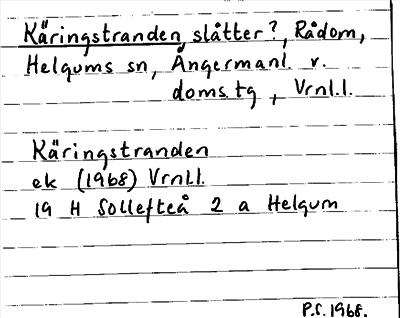 Käringstranden, slåtter?, Rådom,
Helgums sn, Ångermanl. v.
doms.tg, Vrnl.l.
Käringstranden
ek (1968) Vrnl.l.
19 H Sollefteå 2 a Helgum
P.S. 1968.